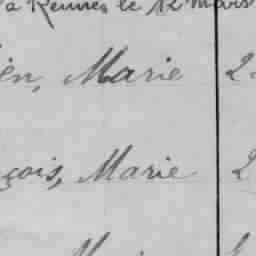 à Rennes le 12 mars
en, Marie 2
çois, Marie 2